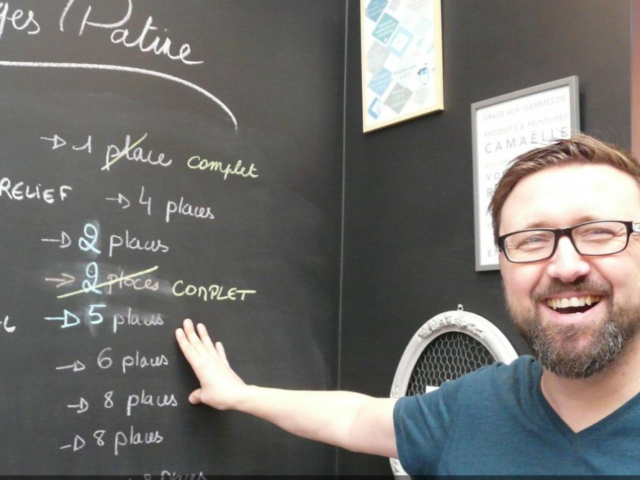 ges / Patine
→ 1 place complet
RELIEF → 4 places
→ 2 places
→ 2 places COMPLET
→ 5 places
→ 6 places
→ 8 places
→ 8 places
8 places
GRÂCE AUX GAMMES DE
PRODUITS & PEINTURES
CAMAËLLE